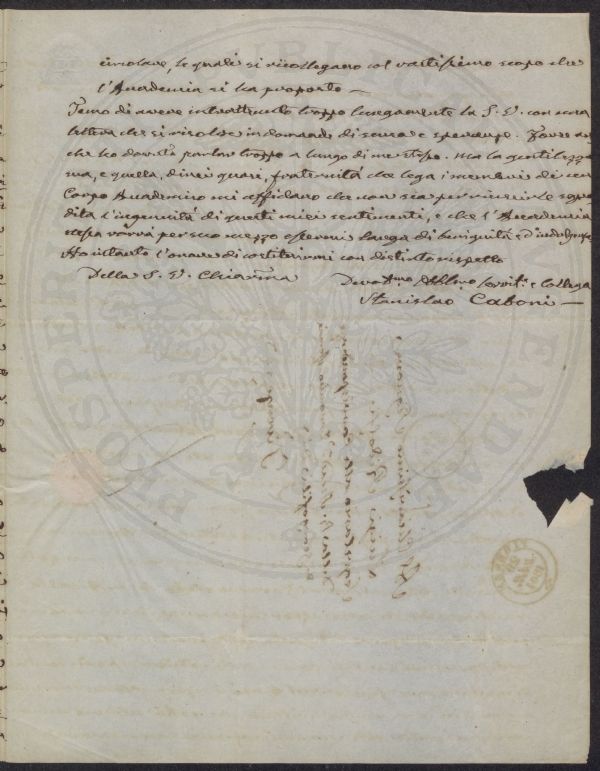 circolare, le quali si ricollegano col vastissimo scopo che
l'Accademia si ha proposto —
Temo di avere intrattenuto troppo lungamente la S. V. con una
lettera che si risolve in domande di scusa e speranze. Forse an
che ho dovuto parlar troppo a lungo di me stesso. Ma la gentilezza
sua, e quella, direi quasi, fraternità che lega i membri di un
Corpo Accademico mi affidano che non sia per riuscirle sgra
dita l'ingenuità di questi miei sentimenti, e che l'Accademia
stessa vorrà per suo mezzo essermi larga di benignità e d'indulgenza
Ho intanto l'onore di costituirmi con distinto rispetto
Della S. V. Chiarma
Devotmo Obblmo Servit. e Collega
Stanislao Caboni —
PROSPERITATI PUBLICAE AUGENDAE